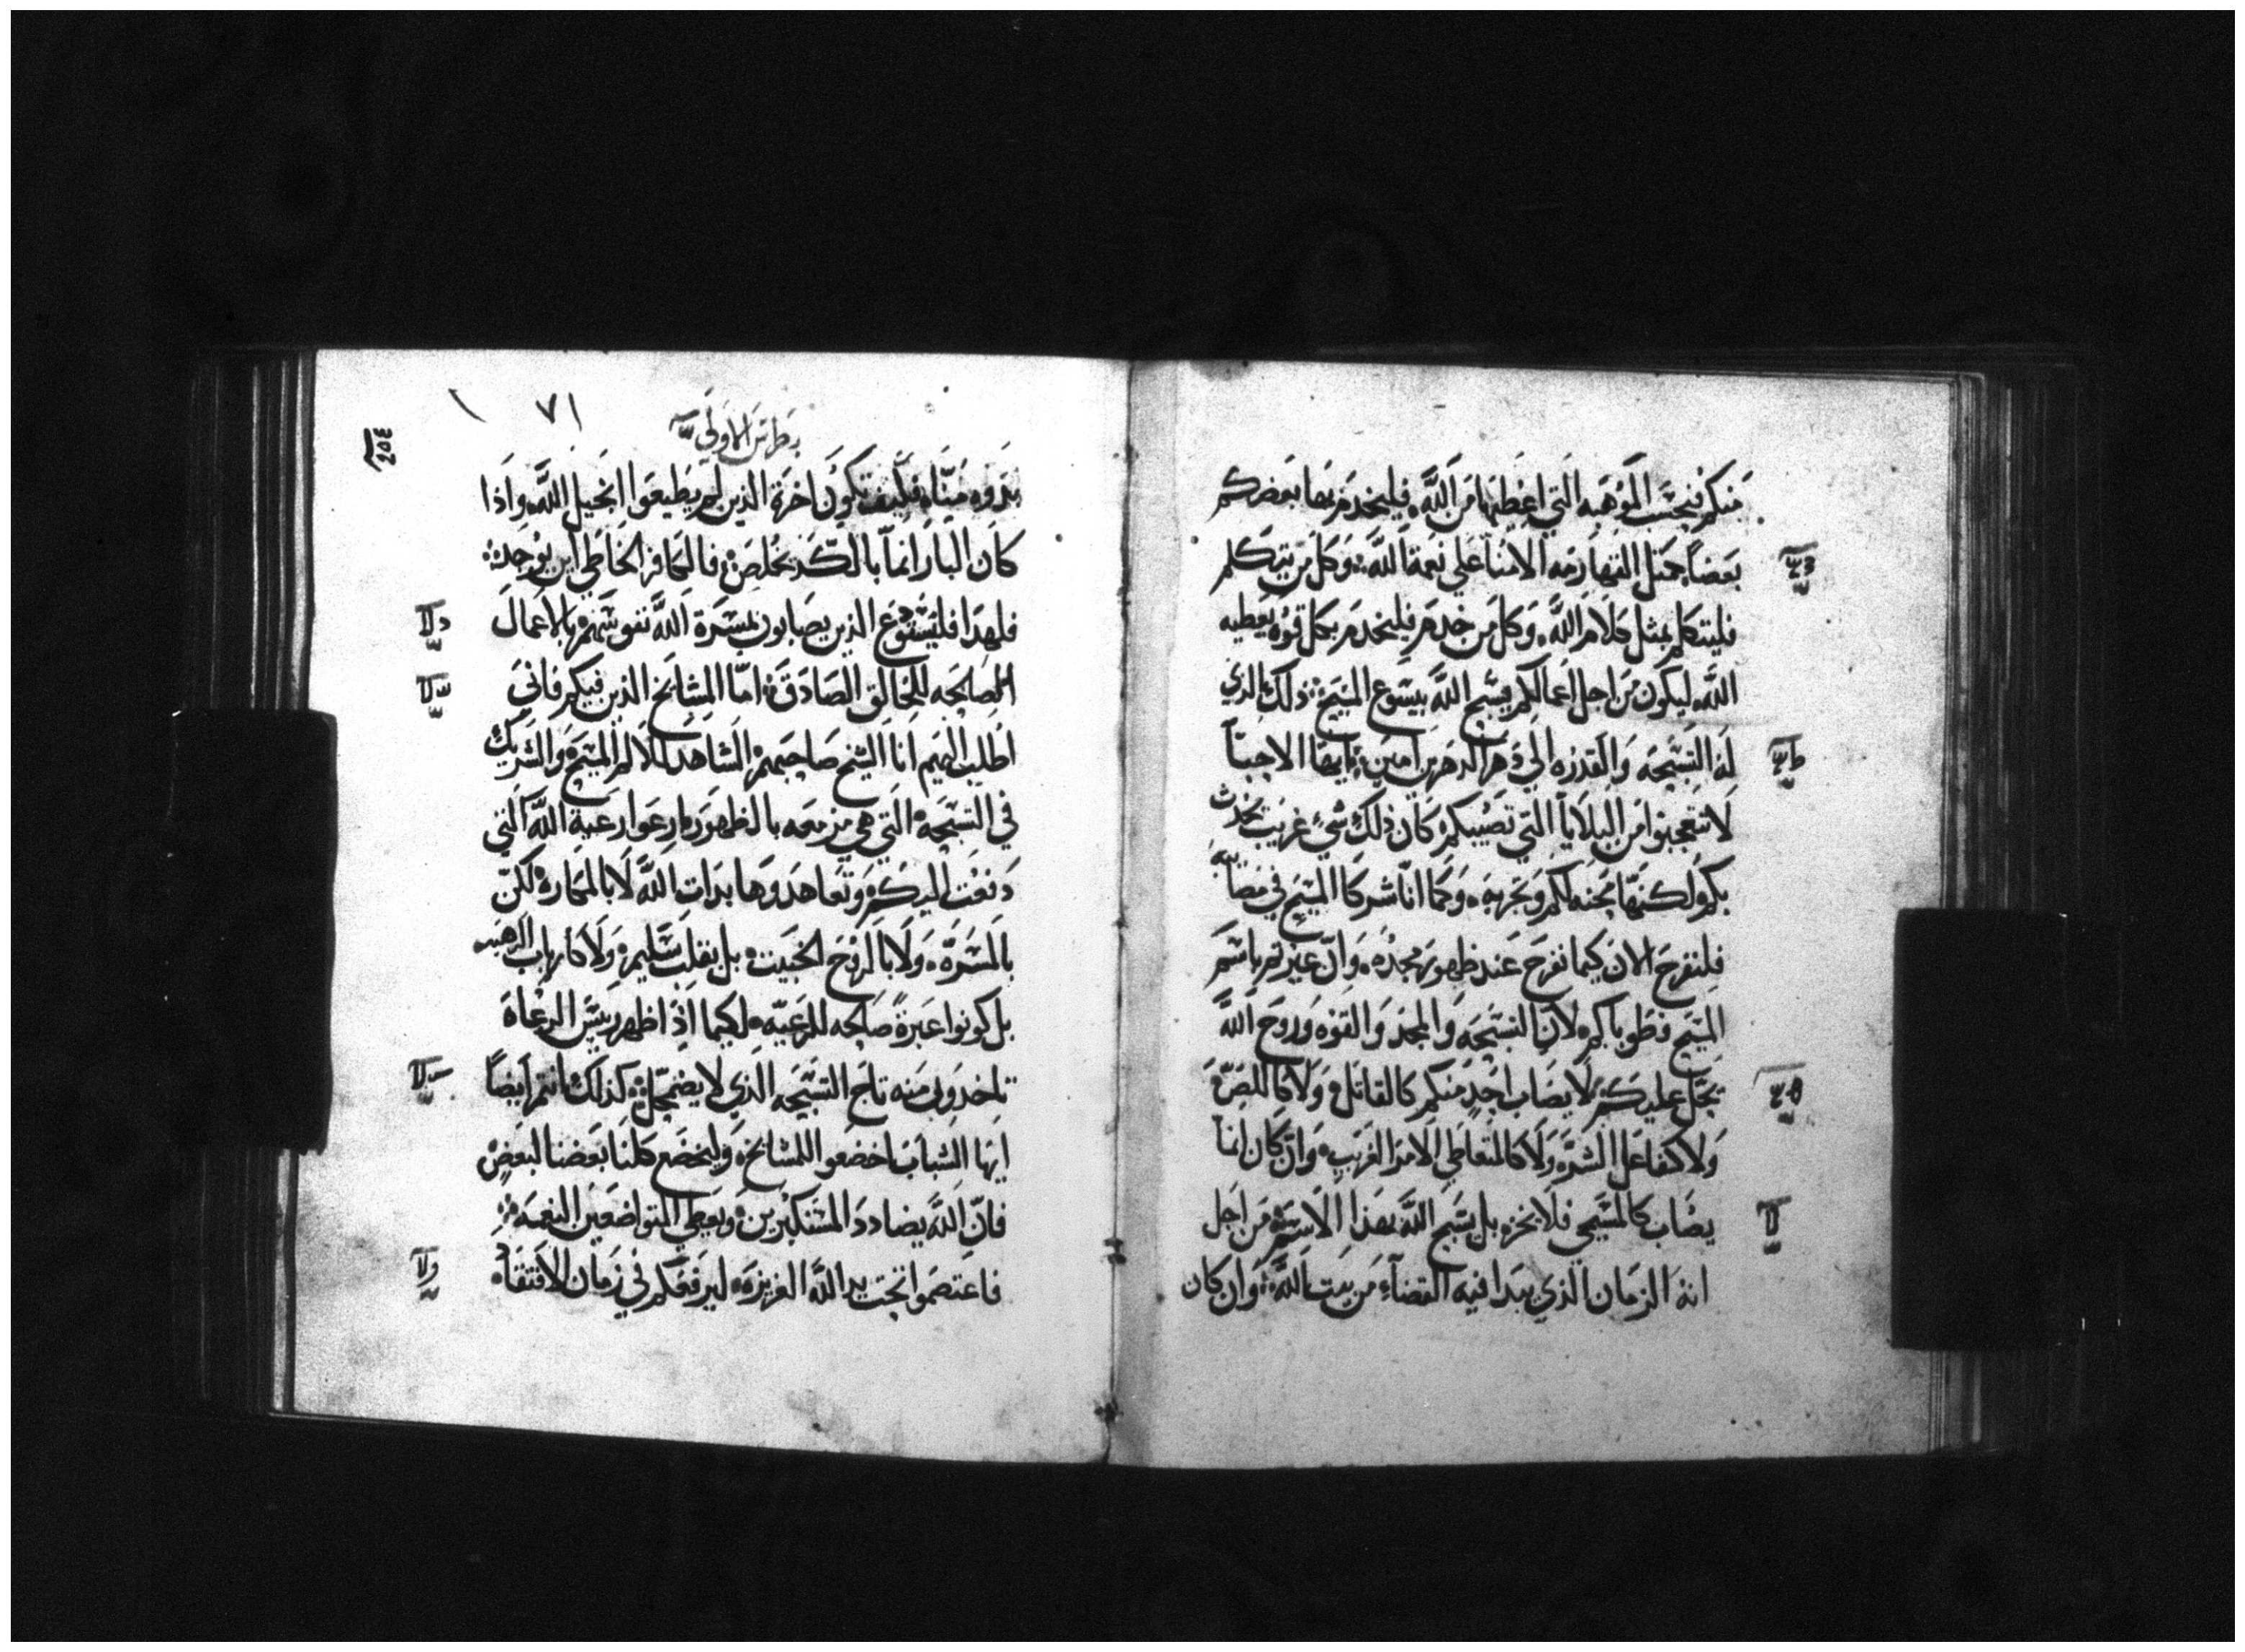 منكم فبحسب الموهبه التي اعطيها من الله، فليخدم بها بعضكم
بعضاً، مثل القهارمه الامنا على نعمة الله، وكل من يتكلم
فليتكلم بمثل كلام الله، وكل من خدم فليخدم بكل قوه يعطيه
الله، ليكون من اجل اعمالكم يسبح الله بيسوع المسيح، ذلك الذي
له التسبحه والقدره الي دهر الدهرين امين، ايها الاحبا
لا تتعجبوا من البلايا التي تصيبكم كان ذلك شي غريب يحدث
بكم ولكنها محنه لكم وتجربه، وكما انا شركا المسيح في مصايبه
فلنفرح الان كيما نفرح عند ظهور مجده، وان عيرتم باسم
المسيح فطوباكم، لان التسبحه والمجد والقوه وروح الله
تحل عليكم، لا يصاب احد منكم كالقاتل، ولا كاللص
ولا كفاعل الشر، ولا كالمتعاطي الامر الغريب، وان كان انما
يصاب كالمسيحي فلا يخزه بل يسبح الله بهذا الاسم، من اجل
انه الزمان الذي يبدا فيه القضآء من بيت الله، وان كان
بطرس الاولي
٧١
بدوه منا، فكيف تكون اخرة الذين لم يطيعوا انجيل الله، واذا
كان البار انما بالكد يخلص، فالكافر الخاطي اين يوجد،
فلهذا فليستودع الذين يصابون بمسرة الله نفوسهم بالاعمال
الصالحه للخالق الصادق، اما المشايخ الذين فيكم فاني
اطلب اليهم انا الشيخ صاحبهم، الشاهد لالام المسيح، والشريك
في التسبحه التي هي مزمعه بالظهور، ارعوا رعية الله التي
دفعت اليكم، وتعاهدوها بذات الله لا بالمكاره، لكن
بالمسره، ولا بالروح الخبيث، بل بقلب سليم، ولا كارباب الرهبه
بل كونوا عبرة صالحه للرعيه، لكيما اذا ظهر ريس الرعاه
تاخذوني منه تاج التسبحه الذي لا يضمحل، كذلك انتم ايضاً
ايها الشباب اخضعوا للمشايخ، وليخضع كلنا بعضنا لبعض
فان الله يضادد المستكبرين، ويعطي المتواضعين النعمه،
فاعتصموا تحت يد الله العزيزه، ليرفعكم في زمان الافتقاد